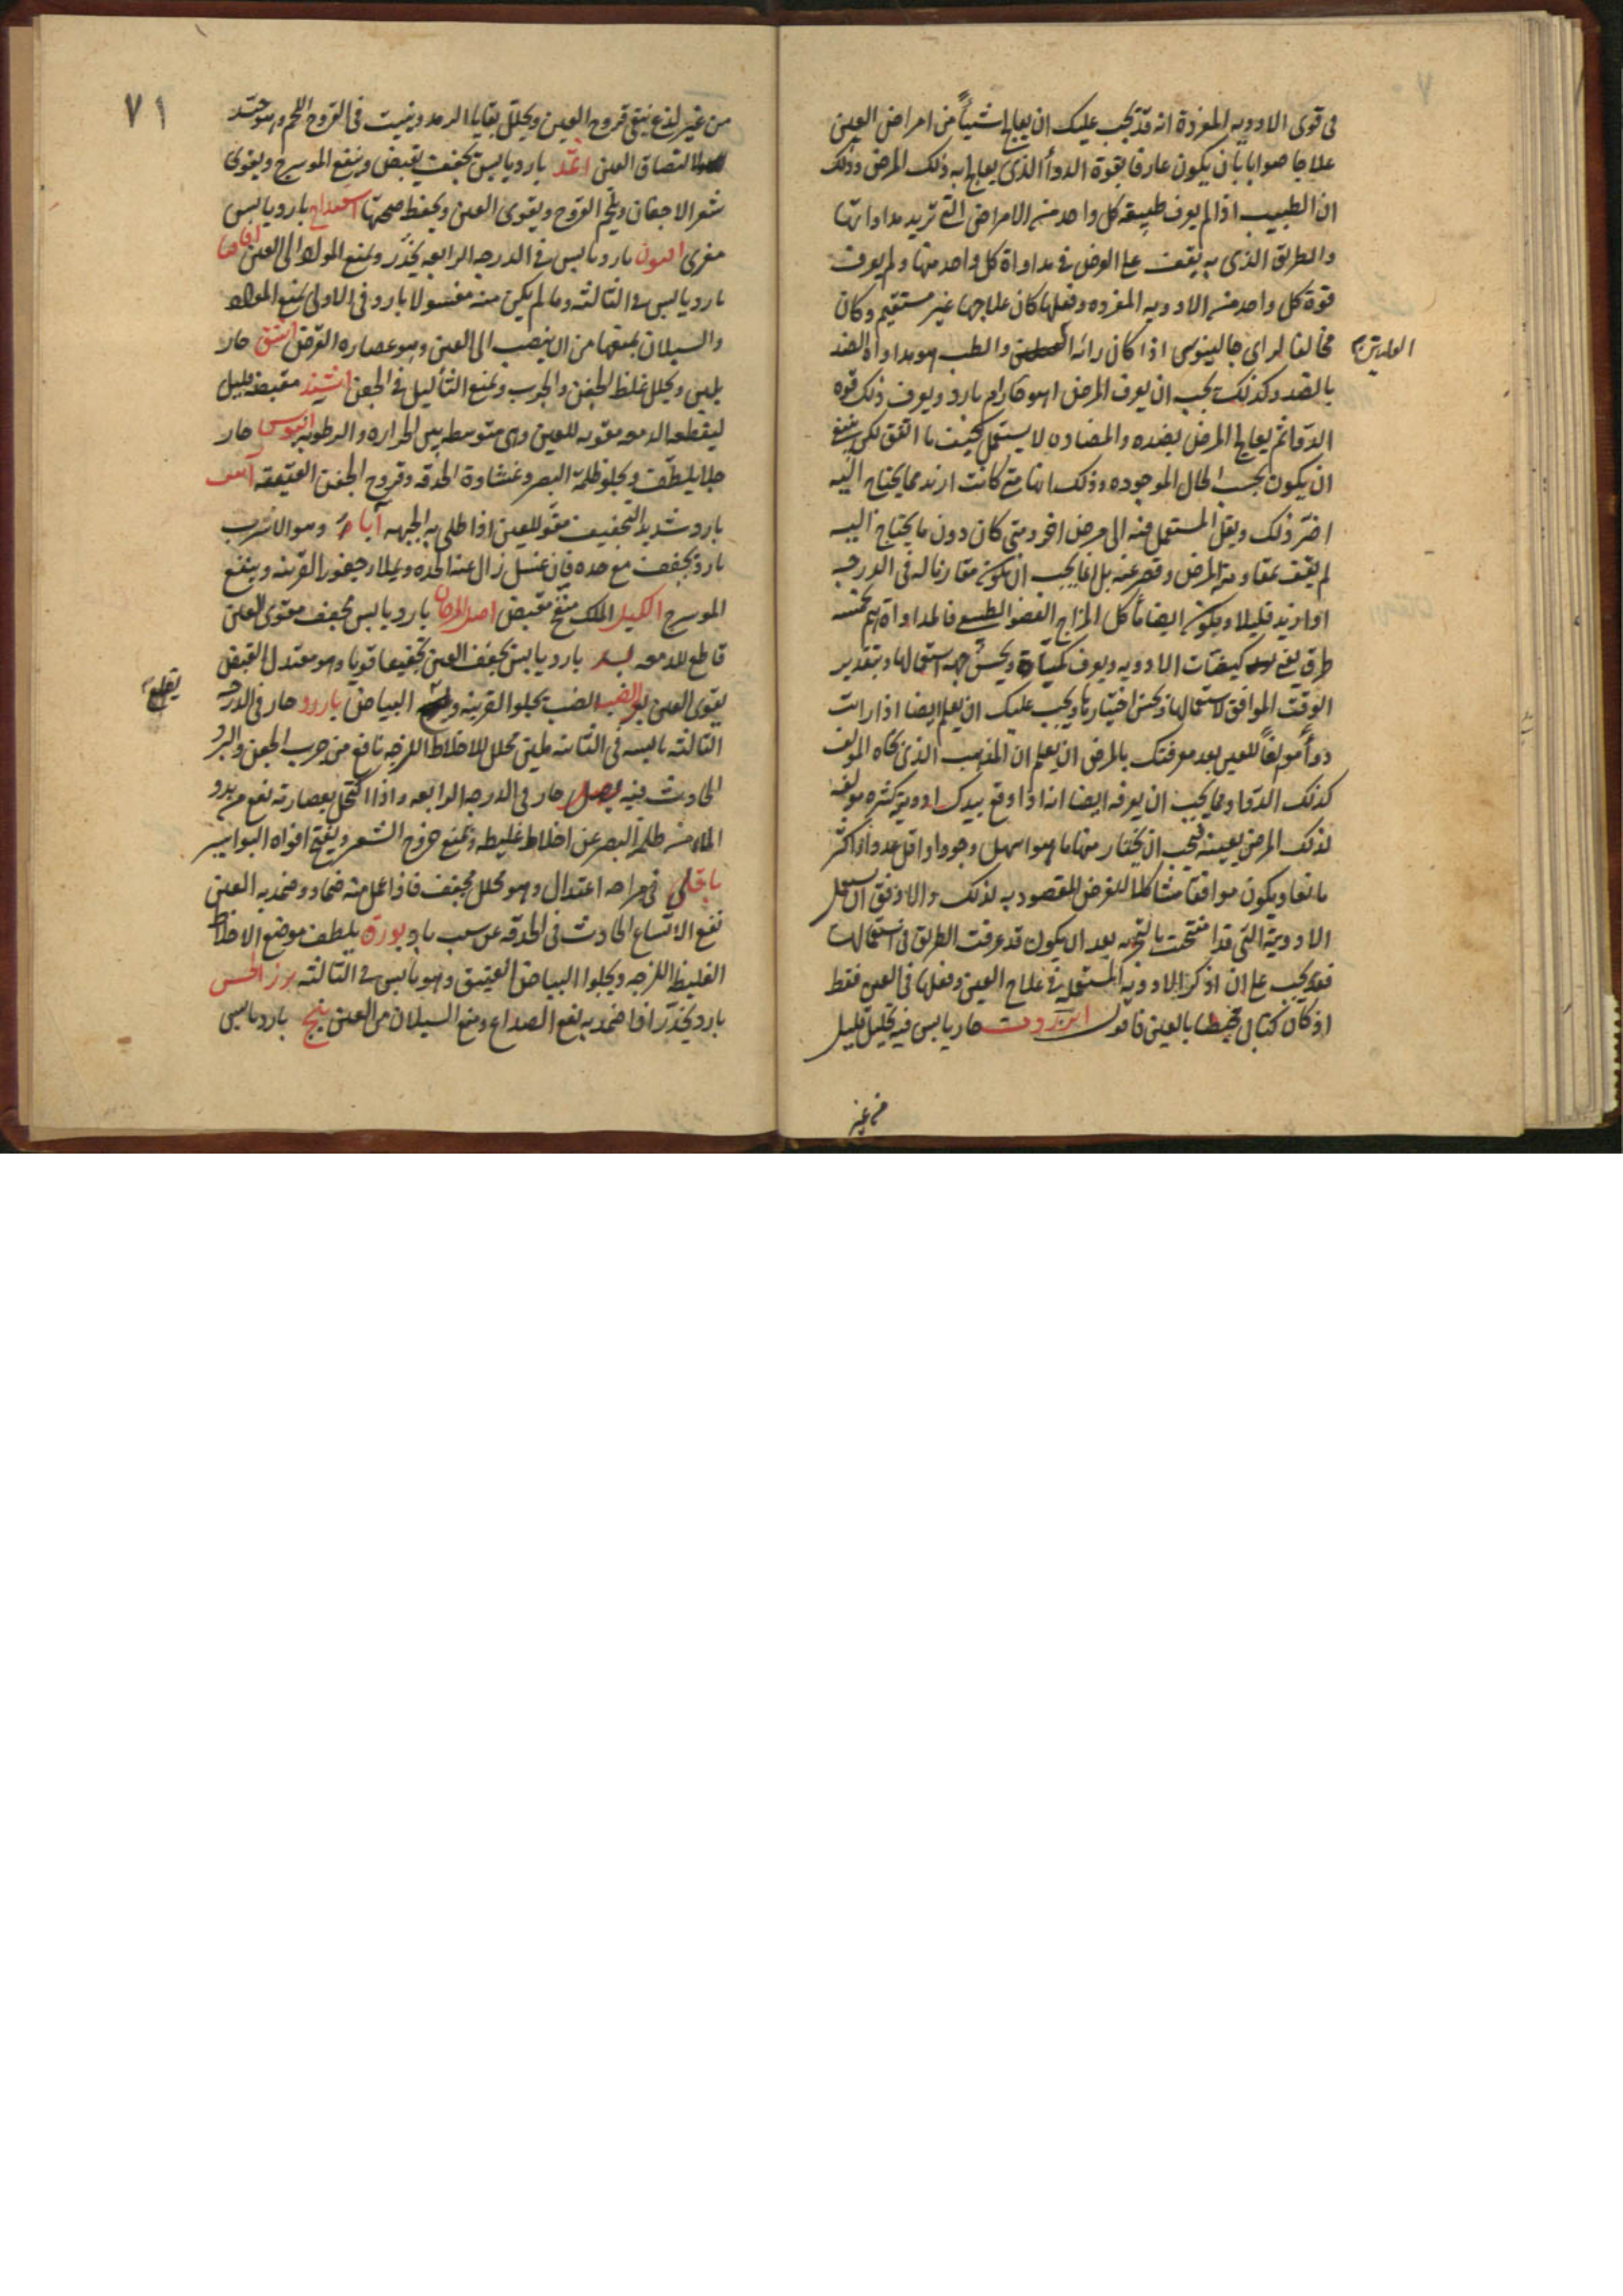 فى قوى الادويه المفردة انه قد يجب عليك ان يعالج اشيأً من امراض العين
علاجا صوابا بان يكون عارفا بقوة الدوأ الذى يعالج به ذلك المرض وذلك
ان الطبيب اذا لم يعرف طبيعة كل واحد من الامراض التى تريد مداواتها
والطريق الذى به يقف على الغرض فى مداواة كل واحد منها ولم يعرف
قوة كل واحد من الادويه المفرده وفعلها كان علاجها غير مستقيم وكان
مخالفا لراى جالينوس اذا كان رائه والطب هو مداواة الضد
بالضد وكذلك يجب ان يعرف المرض اهو حار ام بارد ويعرف ذلك قوه
الدوا ثم يعالج المرض بضده والمضاده لا يستعمل كيف ما اتفق لكن ينبغى
ان يكون بحسب الحال الموجوده وذلك انها متى كانت ازيد مما يحتاج اليه
اضرّ ذلك ونقل المستعمل منه الى مرض اخر ومتى كان دون ما يحتاج اليه
لم يقف بمقاومة المرض وقصر عنه بل انما يجب ان تكون مقارنا له فى الدرجه
او ازيد قليلا ويكون ايضا مأكل المزاج العضو الطبيعى فالمداواة يتم بخمسه
طرق كيفيات الادويه ويعرف كمياته ويحسن جهه استعمالها وبتقدير
الوقت الموافق لاستعمالها وبحسن اختيارها ويجب عليك ان يعلم ايضا اذا رايت
دوأ مولفاً للعين بعد معرفتك بالمرض ان يعلم ان المذهب الذى نحاه المولف
كذلك الدوا ومما يجب ان يعرفه ايضا انه اذا وقع بيدك ادوية كثيره مولفه
لذلك المرض بعينه فيجب ان يختار منها ما هو اسهل وجودا واقل عددا واكثر
مانعا ويكون موافقا مشاكلا للغرض المقصود به لذلك والاوفق ان يستعمل
الادوية التى قد امتحنت بالتجربه بعد ان يكون قد عرفت الطريق فى استعمالها
فقد يجب على ان اذكر الادويه المستعمله فى علاج العين وفعلها فى العين فقط
اذ كان كتابى بالعين فاقول انزروت حار يابس فيه تحليل قليل
من غير
٧١
من غير لذع ينقى قروح العين ويحلل بقايا الرمد وينبت فى القروح اللحم وهو جيد
لالتصاق العين اثمد بارد يابس يجفف يقبض وينفع الموسرج ويقوى
شعر الاجفان ويلحم القروح ويقوى العين ويحفظ صحتها اسفيداج بارد يابس
مغرى افيون بارد يابس فى الدرجه الرابعه يخدّر ويمنع المواد الى العين اقاقيا
بارد يابس فى الثالثه وما لم يكن منه مغسولا بارد فى الاولى يمنع المواد
والسيلان يمنعها من ان ينصب الى العين وهو عصاره القرض اشق حار
يلين ويحلل غلظ الجفن والجرب ويمنع الثأليل فى الجفن مقبضه قليل
ليقطع الدمعه مقويه للعين وهى متوسطه بين الحراره والرطوبه ابنوس حار
جلا يلطف ويجلو ظلمة البصر وغشاوة الحدقه وقروح الجفن العتيقه
بارد شديد التجفيف مقو للعين اذا طلى به الجبهه آبار وهو الاسرب
بارد يجفف مع حده فان غسل زال عنه الحده ويملا حفور القرنه وينفع
الموسرج اكليل الملك منضج مقبض اصل المرجان بارد يابس مجفف مقوى للعين
قاطع للدمعه بسد بارد يابس يجفف العين تجفيفا قويا وهو معتدل القبض
يقوى العين بعر الضب يجلوا القرنيه البياض بارود حار فى الدرجه
يقلع
الثالثه يابسه فى الثانيه ملين محلل للاخلاط اللزجه نافع من جرب الجفن والبرد
الحادث فيه بصل حار فى الدرجه الرابعه واذا اكتحل بعصارته نفع من بدو
الماء من ظلمة البصر عن اخلاط غليظه ويمنع خروج الشعر ويفتح افواه البواسير
باقلى فى مزاجه اعتدال وهو محلل مجفف فاذا عمل منه ضماد وضمد به العين
نفع الاتساع الحادث فى الحدقه عن سبب باد بورق يلطف موضع الاخلاط
الغليظ اللزجه ويجلوا البياض العتيق وهو يابس فى الثالثه بزر الخس
بارد يخدّر اذا ضمد به نفع الصداع ومنع السيلان من العين بنج بارد يابس